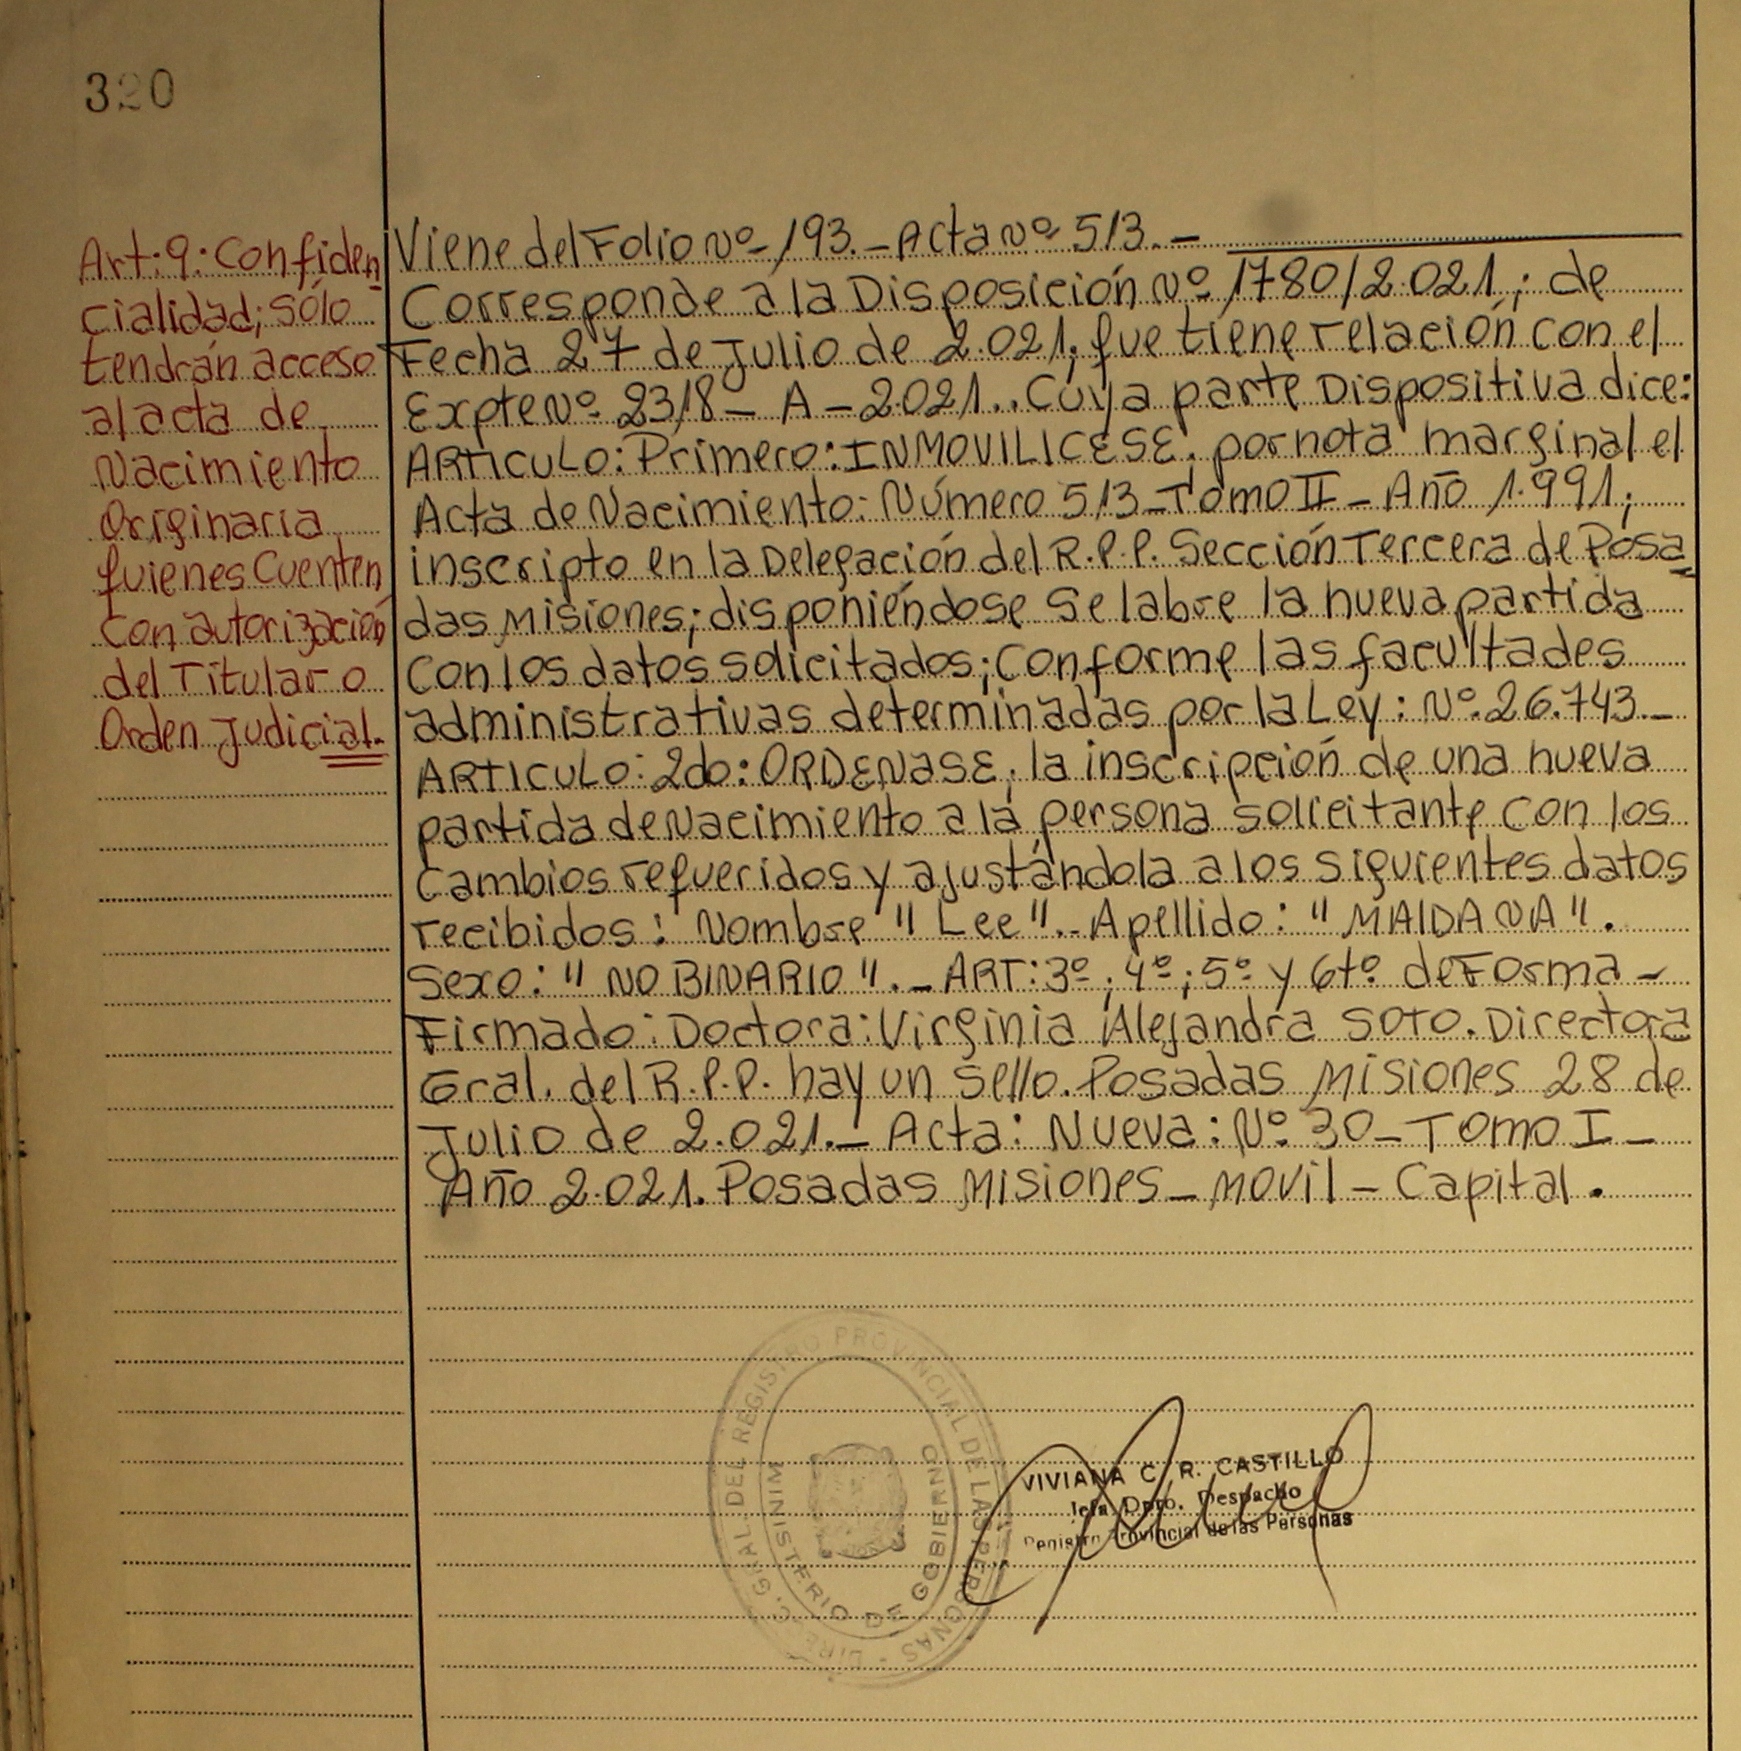 320
Art: 9: Confiden
cialidad; sólo
tendrán acceso
al acta de
Nacimiento
Originaria
quienes Cuenten
Con autorización
del Titular o
Orden Judicial.
Viene del Folio Nº 193. - Acta Nº 513. -
Corresponde a la Disposición Nº 1780/2.021; de
Fecha 27 de Julio de 2.021, que tiene relación con el
Expte Nº 2318 - A - 2.021.. Cuya parte Dispositiva dice:
ARTICULO: Primero: INMOVILICESE, por nota marginal el
Acta de Nacimiento: Número 513 - Tomo II - Año 1.991;
inscripto en la Delegación del R.P.P. Sección Tercera de Posa
das Misiones; disponiéndose se labre la nueva partida
con los datos solicitados; Conforme las facultades
administrativas determinadas por la Ley: Nº 26.743. -
ARTICULO: 2do: ORDENASE, la inscripción de una nueva
partida de Nacimiento a la persona solicitante con los
cambios requeridos y ajustándola a los siguientes datos
recibidos: Nombre "Lee".. Apellido: "MAIDANA".
Sexo: "NO BINARIO". - ART: 3º; 4º; 5º y 6tº de Forma -
Firmado: Doctora: Virginia Alejandra SOTO. Directora
Gral. del R.P.P. hay un sello. Posadas Misiones 28 de
Julio de 2.021. - Acta: Nueva: Nº 30 - Tomo I -
Año 2.021. Posadas Misiones - Movil - Capital.
DIREC. GRAL. DEL REGISTRO PROVINCIAL DE LAS PERSONAS -
MINISTERIO DE GOBIERNO
VIVIANA C. R. CASTILLO
Jefa Dpto. Despacho
Registro Provincial de las Personas